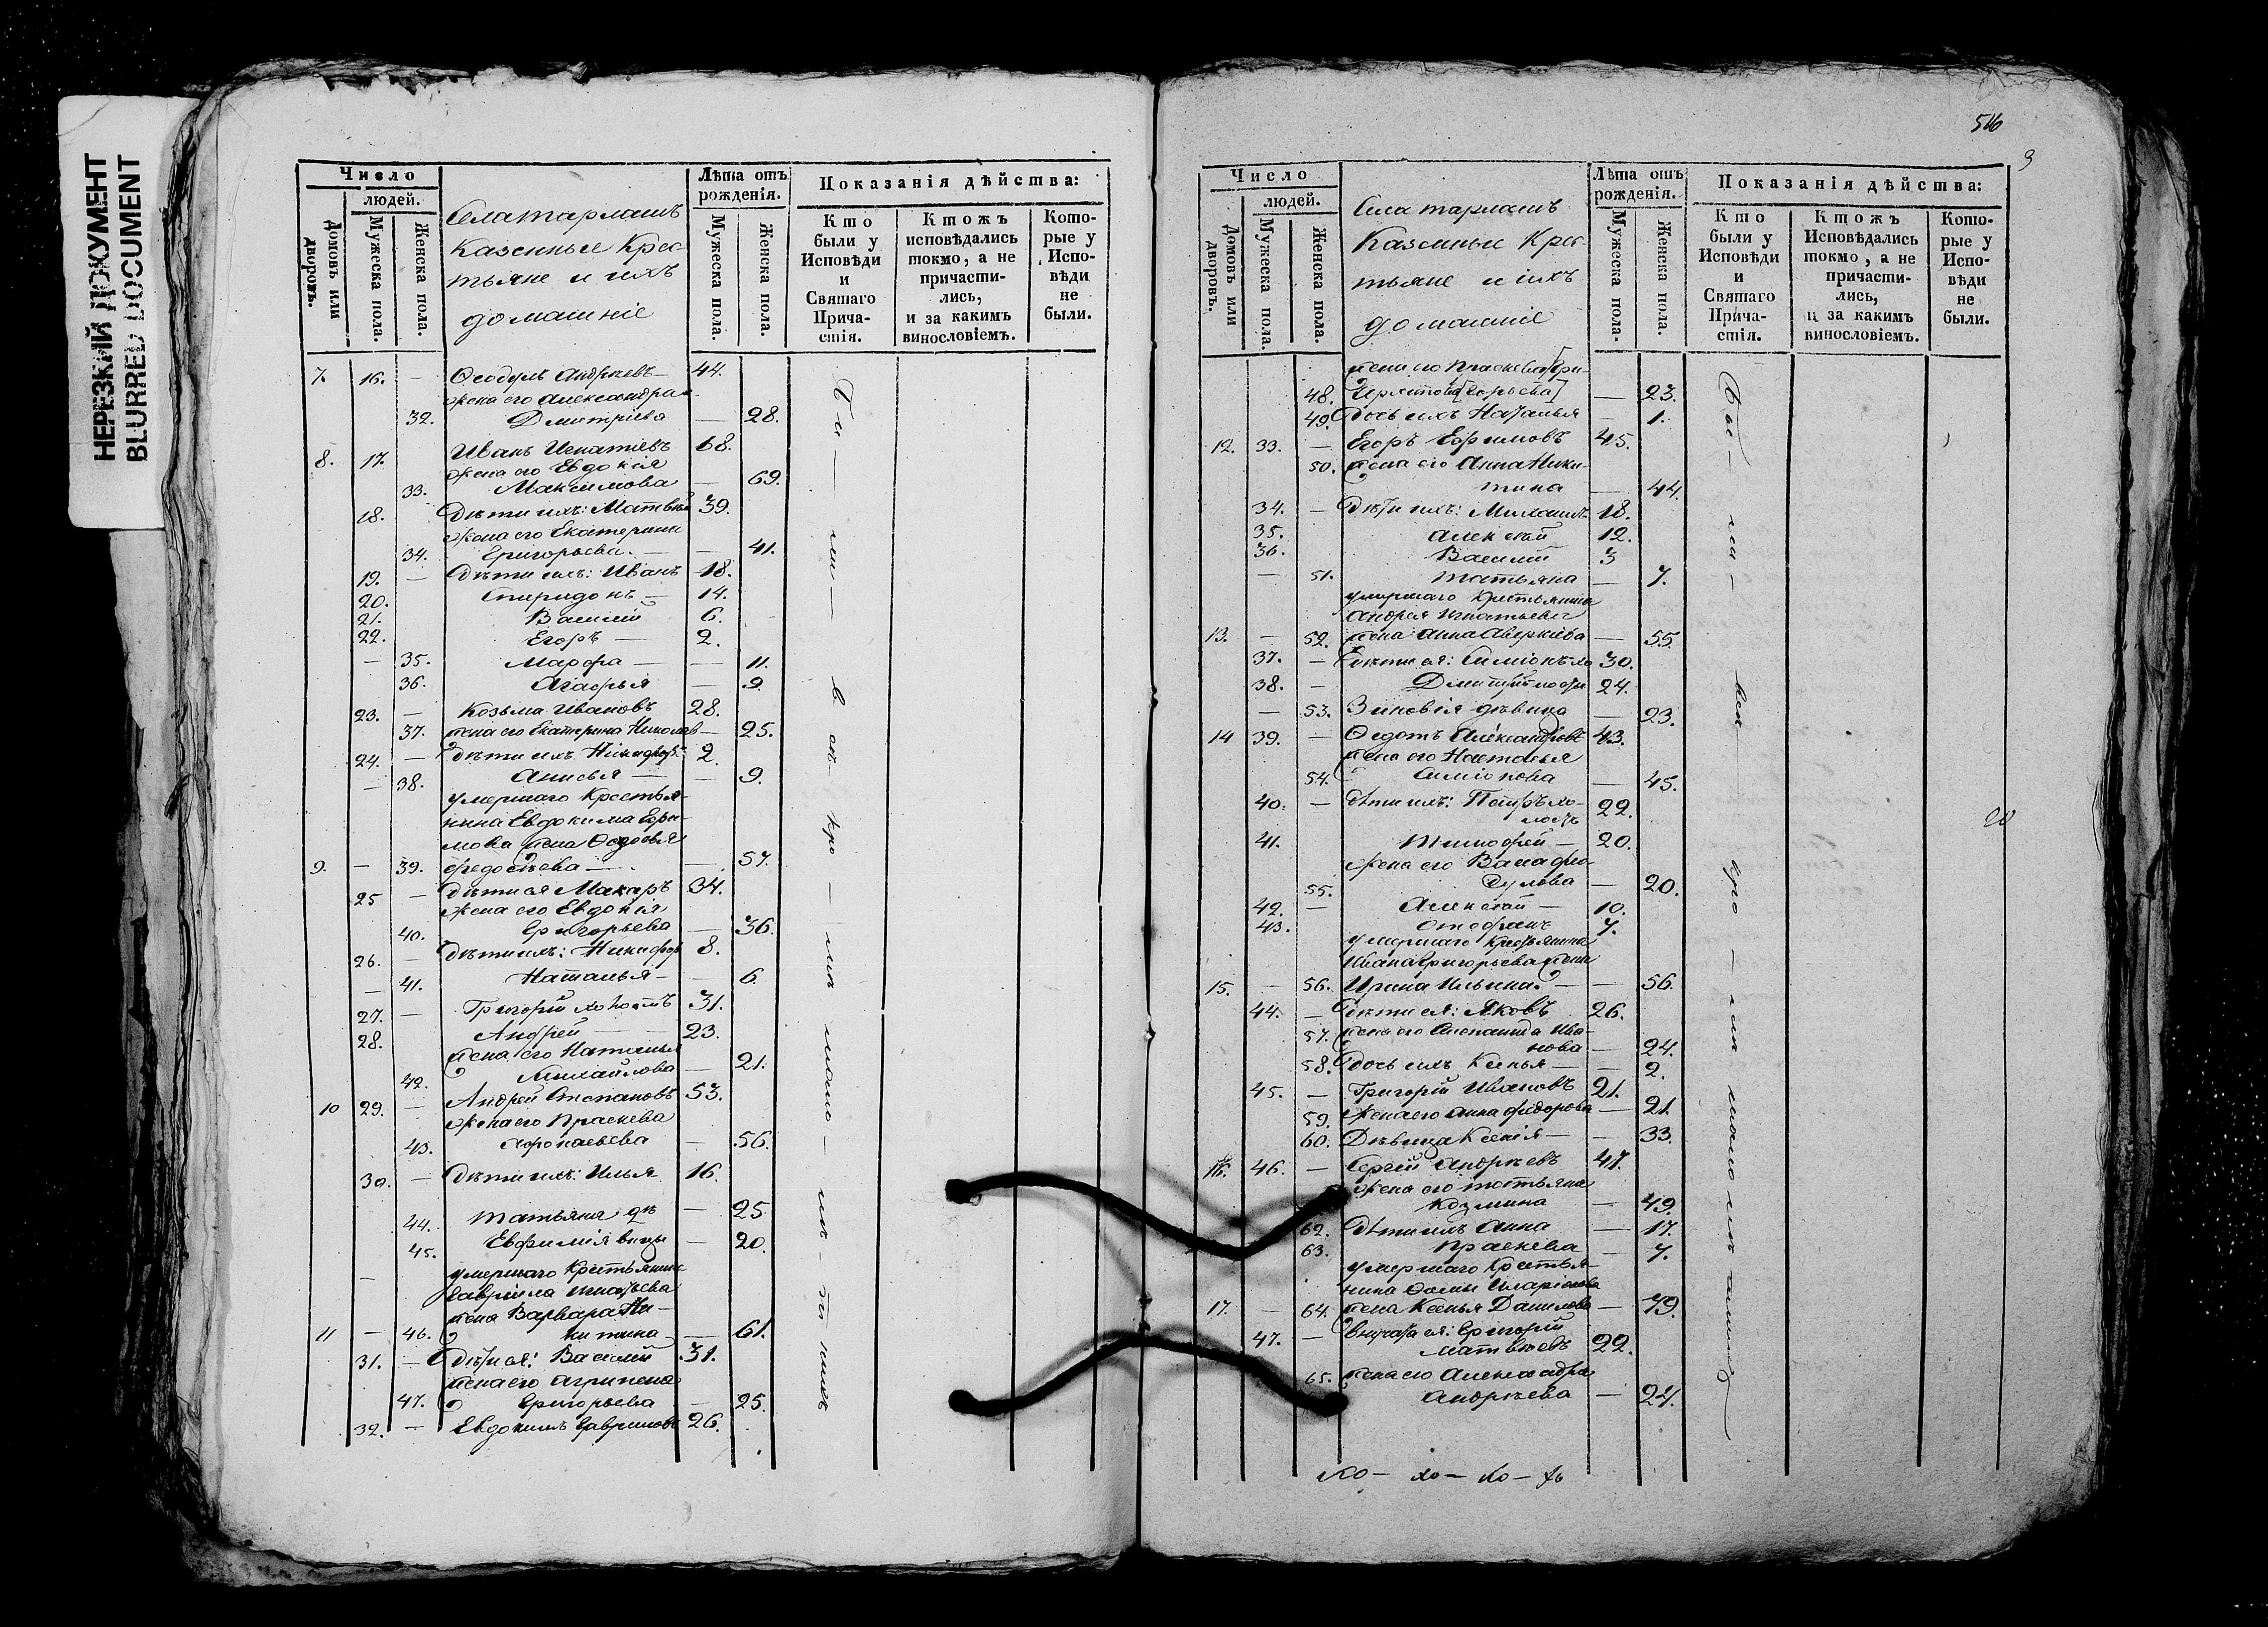 НЕРЕЗКИЙ ДОКУМЕНТ
BLURRED DOCUMENT
Число
людей.
Домовъ или дворовъ.
Мужеска пола.
Женска пола.
Села
Казенные Крес-
тьяне и ихъ
домашніе
Лѣта отъ рожденія.
Мужеска пола.
Женска пола.
Показанія дѣйства:
Кто были у Исповѣди и Святаго Прича-стія.
Ктожъ исповѣдались токмо, а не причасти-лись, и за какимъ винословіемъ.
Кото-рые у Испо-вѣди не были.
7. 16. — Ѳеодоръ Андрѣевъ — 44.
жена его Александра
32. Дмитріева — 28.
8. 17. Иванъ Игнатіевъ 68.
жена его Евдокія
33. Максимова — 69.
18. Дѣти ихъ: Матвѣй 39.
жена его Екатерина
34. Григорьева — 41.
19. — Дѣти ихъ: Иванъ 18.
20. Спиридонъ — 14.
21. Василій 6.
22. Егоръ — 2.
— 35. Марфа — 11.
36. Агафья — 9.
23. — Козьма Ивановъ 28.
37. жена его Екатерина Николаев — 25.
24. — Дѣти ихъ Никифоръ 2.
— 38. Анисья — 9.
умершаго Крестья-
нина Евдокима Ефи-
мова жена Ѳедосья
9. — 39. Федосѣева — 57.
25 — Дѣти ея Макаръ 34.
жена его Евдокія
40. Григорьева — 36.
26. — Дѣти ихъ: Никифоръ 8.
— 41. Наталья — 6.
27. — Григорій холостъ 31.
28. Андрей — 23.
жена его Наталья
42. Михайлова — 21.
10 29. — Андрей Степановъ 53.
жена его Праскева
43. — 56.
30. — Дѣти ихъ: Илья 16.
44. Татьяна дѣ — 25
45. Евфимія вицы — 20.
умершаго Крестьянина
Гавріила Игнатьева
жена Варвара Ни-
11 — 46. китина — 61.
31. — Дѣти ея: Василій 31.
жена его Агрипена
47. Григорьева — 25.
32. — Евдокимъ Гавриловъ 26.
Бы — ли — в сѣ — кро — мѣ мало — лѣ — т нихъ
516
9
Число
людей.
Домовъ или дворовъ.
Мужеска пола.
Женска пола.
Села
Казенные Крес-
тьяне и ихъ
домашніе
Лѣта отъ рожденія.
Мужеска пола.
Женска пола.
Показанія дѣйства:
Кто были у Исповѣди и Святаго Прича-стія.
Ктожъ Исповѣдались токмо, а не причасти-лись, и за какимъ винословіемъ.
Кото-рые у Испо-вѣди не были.
жена его Праскева
48. — 23.
49. Дочь ихъ Наталья — 1.
12. 33. — Егоръ Ефимовъ 45.
50. жена его Анна Ники-
тина — 44.
34. — Дѣти ихъ: Михаилъ 18.
35. Алексѣй 12.
36. Василій 3
— 51. Татьяна — 7.
умершаго Крестьянина
Андрея Игнатьева
13. — 52. жена Анна Аверкіева — 55
37. — Дѣти ея: Симіонъ хо 30.
38. — Дмитрій 24.
— 53. Зиновія дѣвица — 23.
14 39. — Ѳедотъ Александровъ 43.
жена его Настасья
54. Симіонова — 45.
40. — Дѣти ихъ: Петръ хо-
лостъ 22.
41. Тимофей — 20.
жена его
55. — 20.
42. — Алексѣй — 10.
43. Стефанъ 7.
умершаго Крестьянина
Ивана Григорьева жена
15. — 56. Ирина Ильина — 56.
44. — Дѣти ея: Яковъ 26.
57. жена его Степанида Ива-
нова — 24.
58. Дочь ихъ Ксенья — 2.
45. — Григорій Ивановъ 21.
59. жена его Анна Федорова — 21
60. Дѣвица Ксенія — 33.
16. 46. — Сергѣй Андрѣевъ 47.
жена его Татьяна
Козмина — 49.
62. Дѣти ихъ Анна — 17.
63. Праскева — 7.
умершаго Крестья-
нина Ѳомы Иларіонова
17. — 64. жена Ксенья Данилова — 79.
47. — Внучата ея: Григорій
Матвѣевъ 22.
65. жена его Александра
Андрѣева — 24.
Бы — ли — всѣ — кро — мѣ мало лѣтнихъ
20